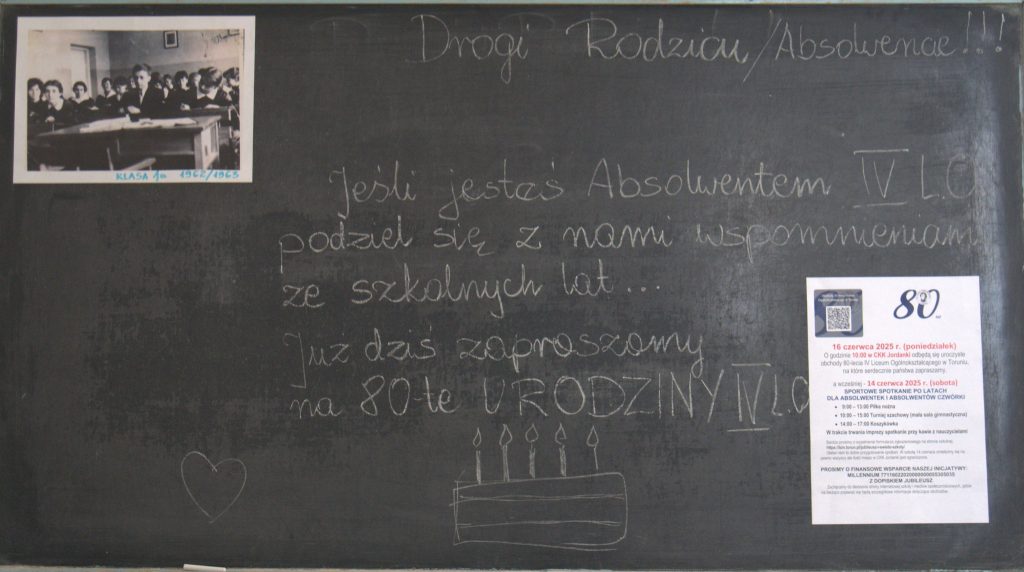 Drogi Rodzicu/Absolwencie!!!
KLASA Ja 1962/1963
Jeśli jesteś Absolwentem IV L.O
podziel się z nami wspomnieniami
ze szkolnych lat...
Już dziś zapraszamy
na 80-te URODZINY IV L.O
80 lat
16 czerwca 2025 r. (poniedziałek)
O godzinie 10:00 w CKK Jordanki odbędą się uroczyste
obchody 80-lecia IV Liceum Ogólnokształcącego w Toruniu,
na które serdecznie państwa zapraszamy,
a wcześniej - 14 czerwca 2025 r. (sobota)
SPORTOWE SPOTKANIE PO LATACH
DLA ABSOLWENTEK I ABSOLWENTÓW CZWÓRKI
• 9:00 – 13:00 Piłka nożna
• 10:00 – 15:00 Turniej szachowy (mała sala gimnastyczna)
• 14:00 – 17:00 Koszykówka
W trakcie trwania imprezy spotkanie przy kawie z nauczycielami
PROSIMY O FINANSOWE WSPARCIE NASZEJ INICJATYWY:
MILLENNIUM
Z DOPISKIEM JUBILEUSZ